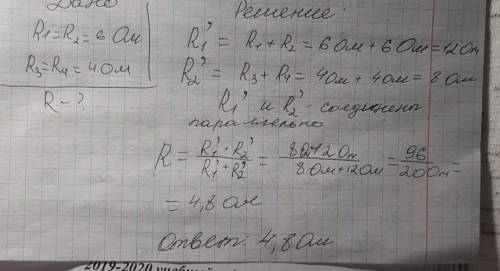 Дано
R1=R2=6 Ом
R3=R4=4 Ом
R-?
Решение:
R1' = R1+R2 = 6 Ом + 6 Ом = 12 Ом
R2' = R3+R4 = 4 Ом + 4 Ом = 8 Ом
R1' и R2' - соединены
параллельно
R = R1' · R2' / R1' + R2' = / 8 Ом + 12 Ом = 96 / 20 Ом =
= 4,8 Ом
Ответ: 4,8 Ом
2019-2020